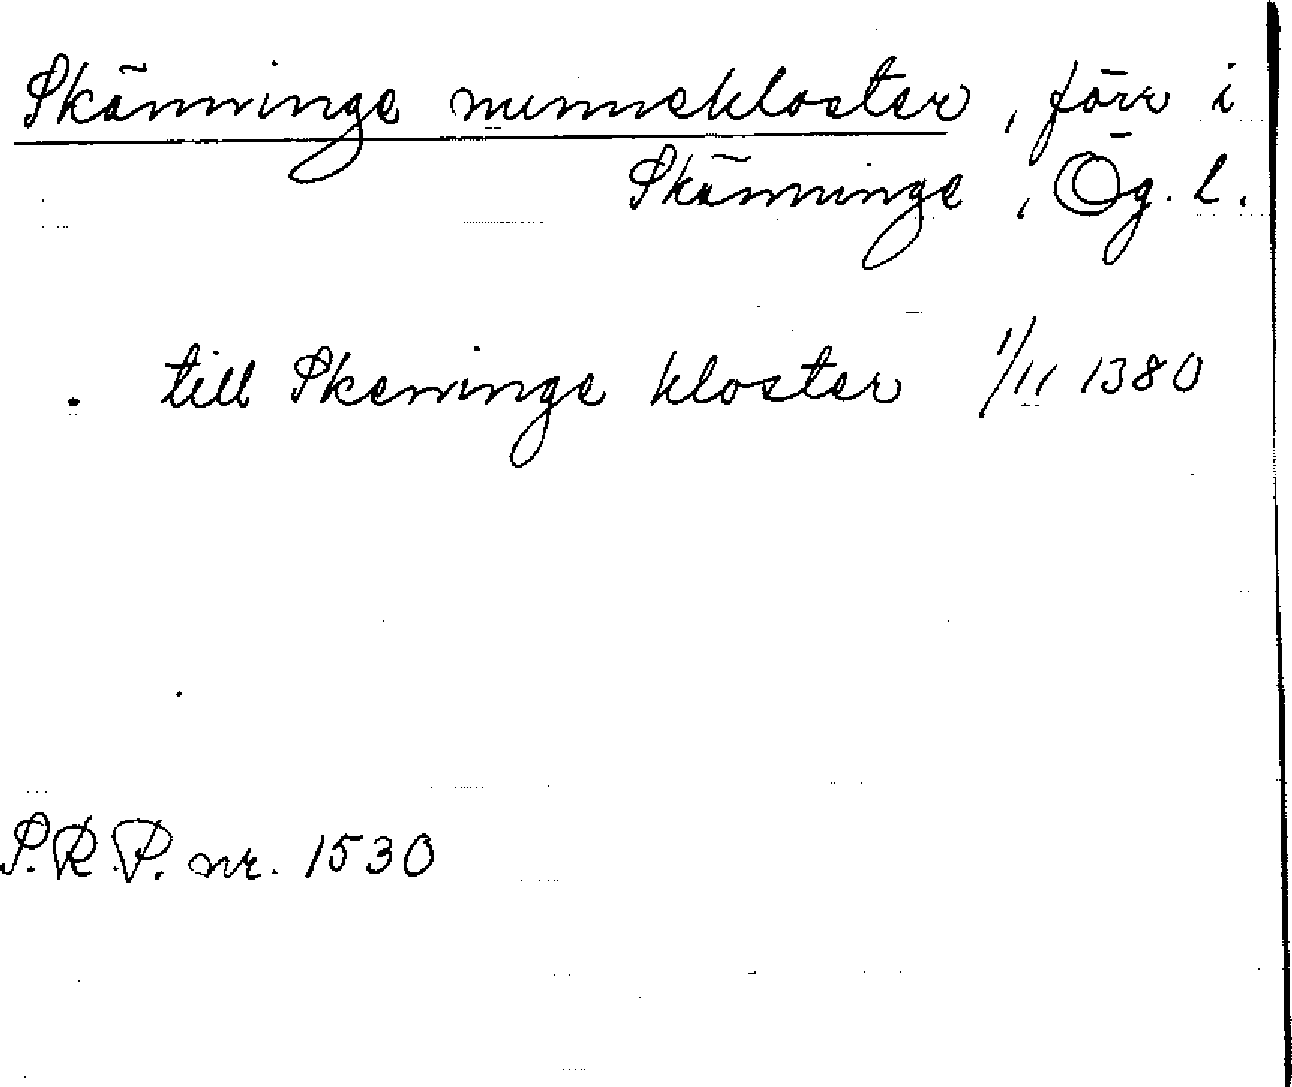 Skänninge nunnekloster, förr i
Skänninge, Ög. l.
till Skeninge kloster 1/11 1380
S.R.P. nr. 1530